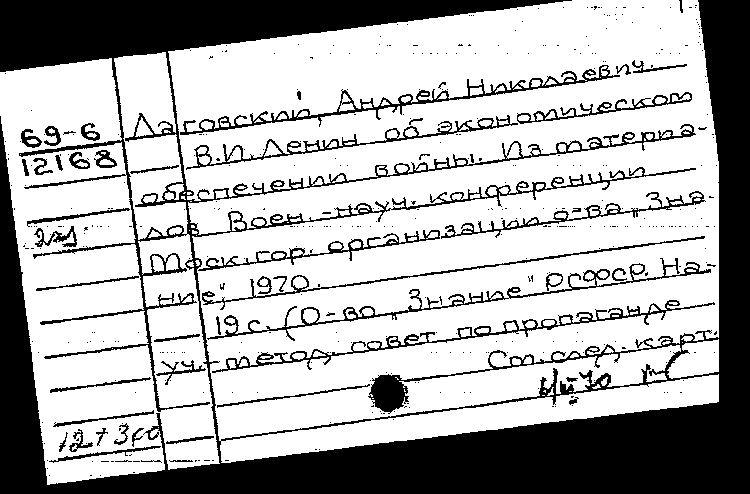 69-6
12168
Лаговский, Андрей Николаевич.
В.И. Ленин об экономическом
обеспечении войны. Из материа-
лов Воен.-науч. конференции
Моск. гор. организации о-ва „Зна-
ние", 1970.
19 с. (О-во „Знание" РСФСР. На-
уч.-метод. совет по пропаганде
См. след. карт.
2 эк.